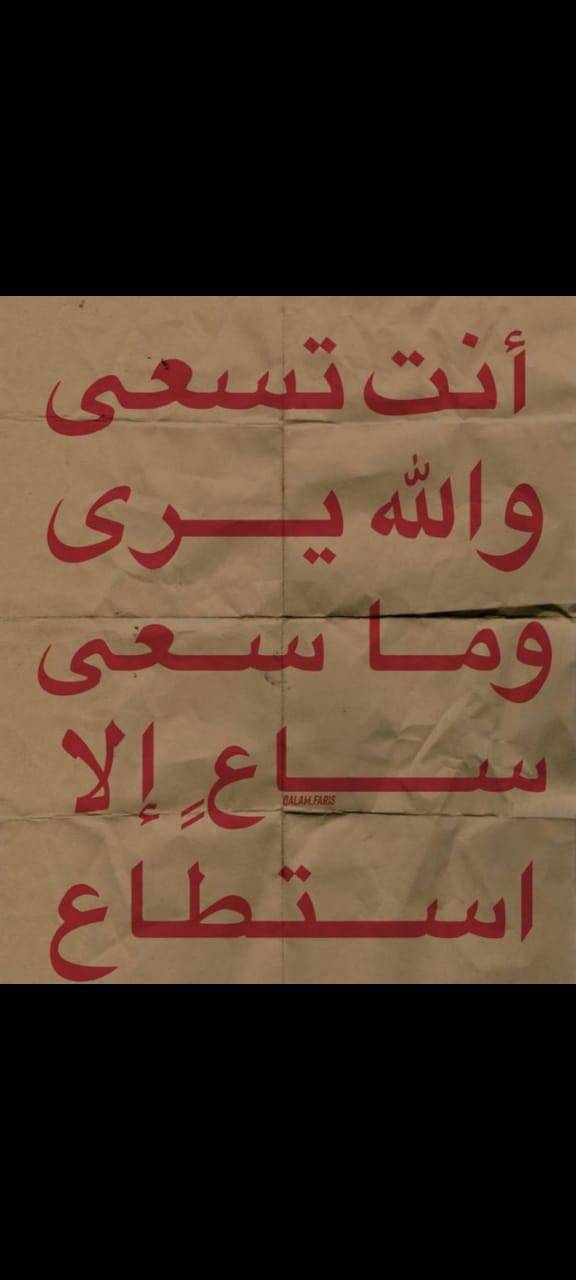 أنت تسعى
والله يرى
وما سعى
ساعٍ إلا
استطاع
QALAM.FARIS